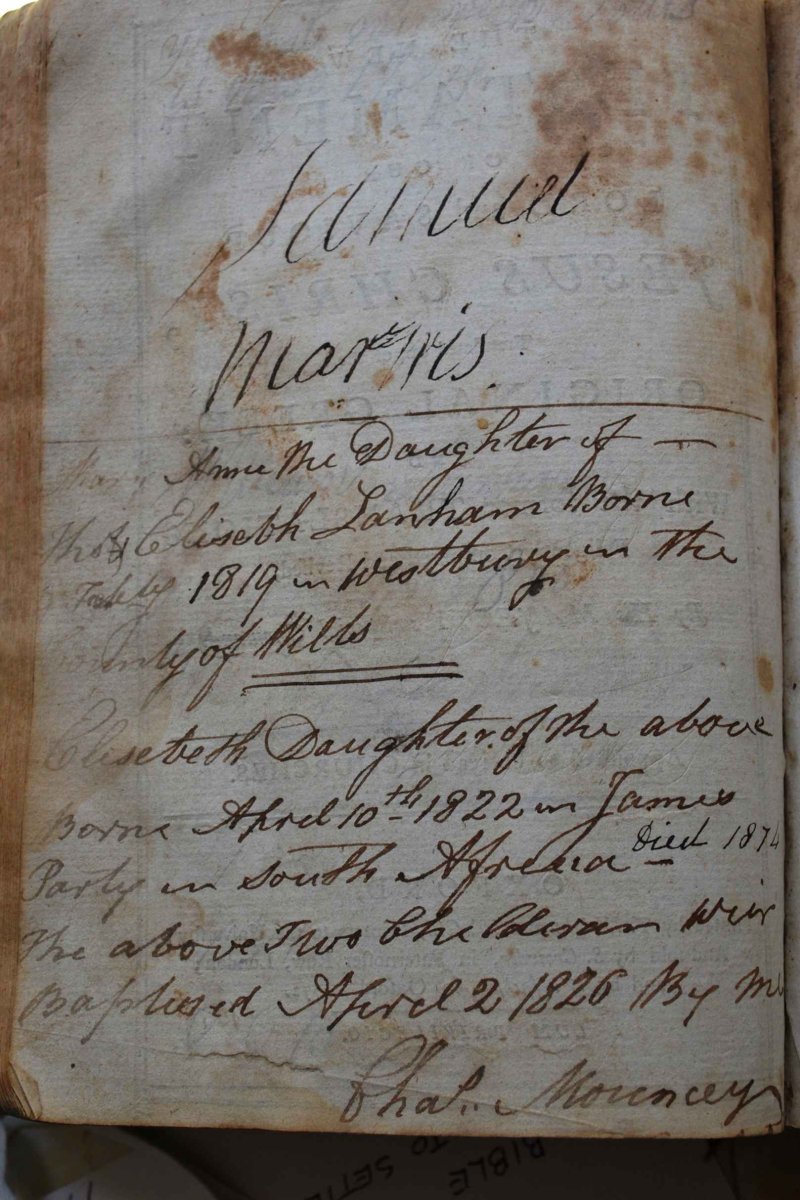 Samuel
Marttris
Mary Anne the Daughter of —
Thos & Elisebth Lanham Borne
1819 in Westbury in the
County of Wilts
Elisebeth Daughter of the above
Borne Aprel 10th 1822 in James
Party in South Afreca Died 1874
The above Two Chelderan weir
Baptised Aprel 2 1826 By Me
Chas. Mouncey
BIBLE
TO SETTL